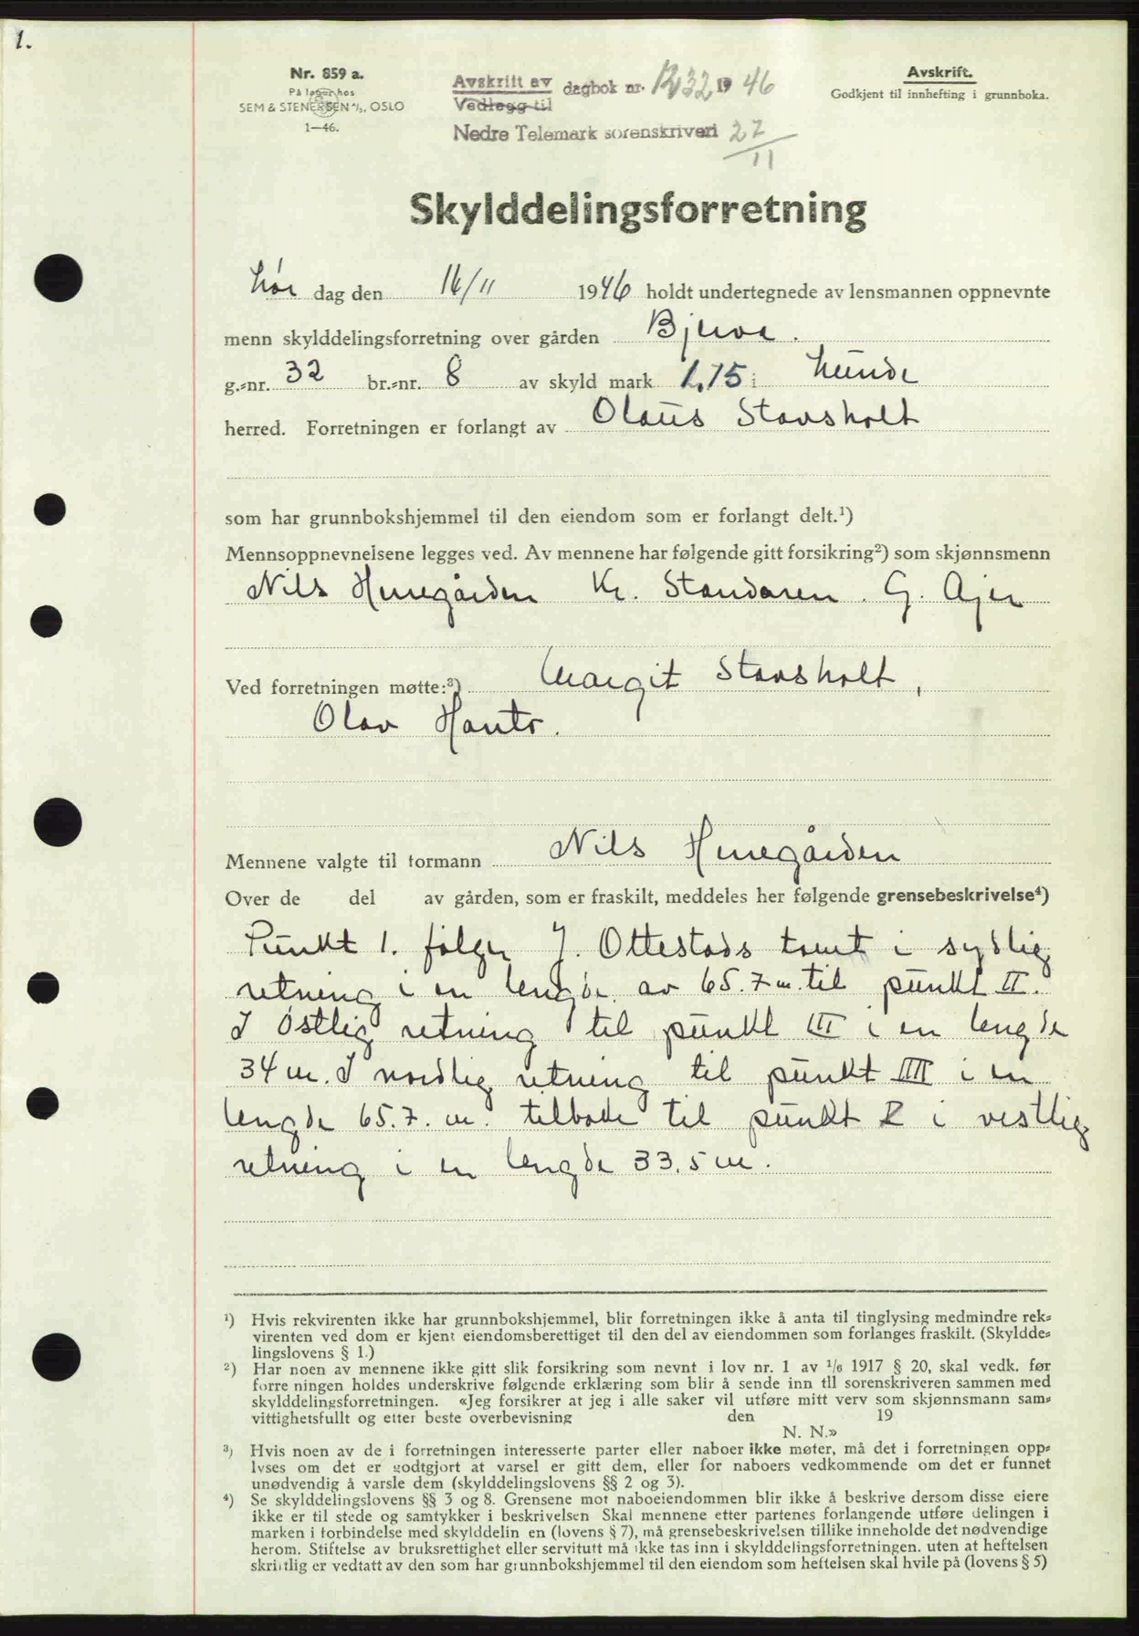 1.
Nr. 859 a.
På lager hos
SEM & STENERSEN A/S, OSLO
1—46.
Avskrift av dagbok nr. 1232 1946
Vedlegg til
Nedre Telemark sorenskriveri 27/11
Avskrift.
Godkjent til innhefting i grunnboka.
Skylddelingsforretning
Lør dag den 16/11 1946 holdt undertegnede av lensmannen oppnevnte
menn skylddelingsforretning over gården Bjerva.
g.-nr. 32 br.-nr. 8 av skyld mark 1,15 i Lunde
herred. Forretningen er forlangt av Olaus Stavsholt
som har grunnbokshjemmel til den eiendom som er forlangt delt.¹)
Mennsoppnevnelsene legges ved. Av mennene har følgende gitt forsikring²) som skjønnsmenn
Nils Huregården Kr. Standaren. G. Ajer
Ved forretningen møtte:³) Margit Stavsholt,
Olav Hauto.
Mennene valgte til formann Nils Huregården
Over de del av gården, som er fraskilt, meddeles her følgende grensebeskrivelse⁴)
Punkt 1. følger J. Ottestads tomt i sydlig
retning i en lengde av 65.7 m. til punkt II.
I østlig retning til punkt III i en lengde
34 m. I nordlig retning til punkt IIII i en
lengde 65.7. m. tilbake til punkt I i vestlig
retning i en lengde 33,5 m.
¹) Hvis rekvirenten ikke har grunnbokshjemmel, blir forretningen ikke å anta til tinglysing medmindre rek-
virenten ved dom er kjent eiendomsberettiget til den del av eiendommen som forlanges fraskilt. (Skyldde-
lingslovens § 1.)
²) Har noen av mennene ikke gitt slik forsikring som nevnt i lov nr. 1 av 1/6 1917 § 20, skal vedk. før
forre ningen holdes underskrive følgende erklæring som blir å sende inn til sorenskriveren sammen med
skylddelingsforretningen. «Jeg forsikrer at jeg i alle saker vil utføre mitt verv som skjønnsmann sam-
vittighetsfullt og etter beste overbevisning den 19
N. N.»
³) Hvis noen av de i forretningen interesserte parter eller naboer ikke møter, må det i forretningen opp-
lyses om det er godtgjort at varsel er gitt dem, eller for naboers vedkommende om det er funnet
unødvendig å varsle dem (skylddelingslovens §§ 2 og 3).
⁴) Se skylddelingslovens §§ 3 og 8. Grensene mot naboeiendommen blir ikke å beskrive dersom disse eiere
ikke er til stede og samtykker i beskrivelsen Skal mennene etter partenes forlangende utføre delingen i
marken i forbindelse med skylddelin en (lovens § 7), må grensebeskrivelsen tillike inneholde det nødvendige
herom. Stiftelse av bruksrettighet eller servitutt må ikke tas inn i skylddelingsforretningen. uten at heftelsen
skriftlig er vedtatt av den som har grunnbokshjemmel til den eiendom som heftelsen skal hvile på (lovens § 5)